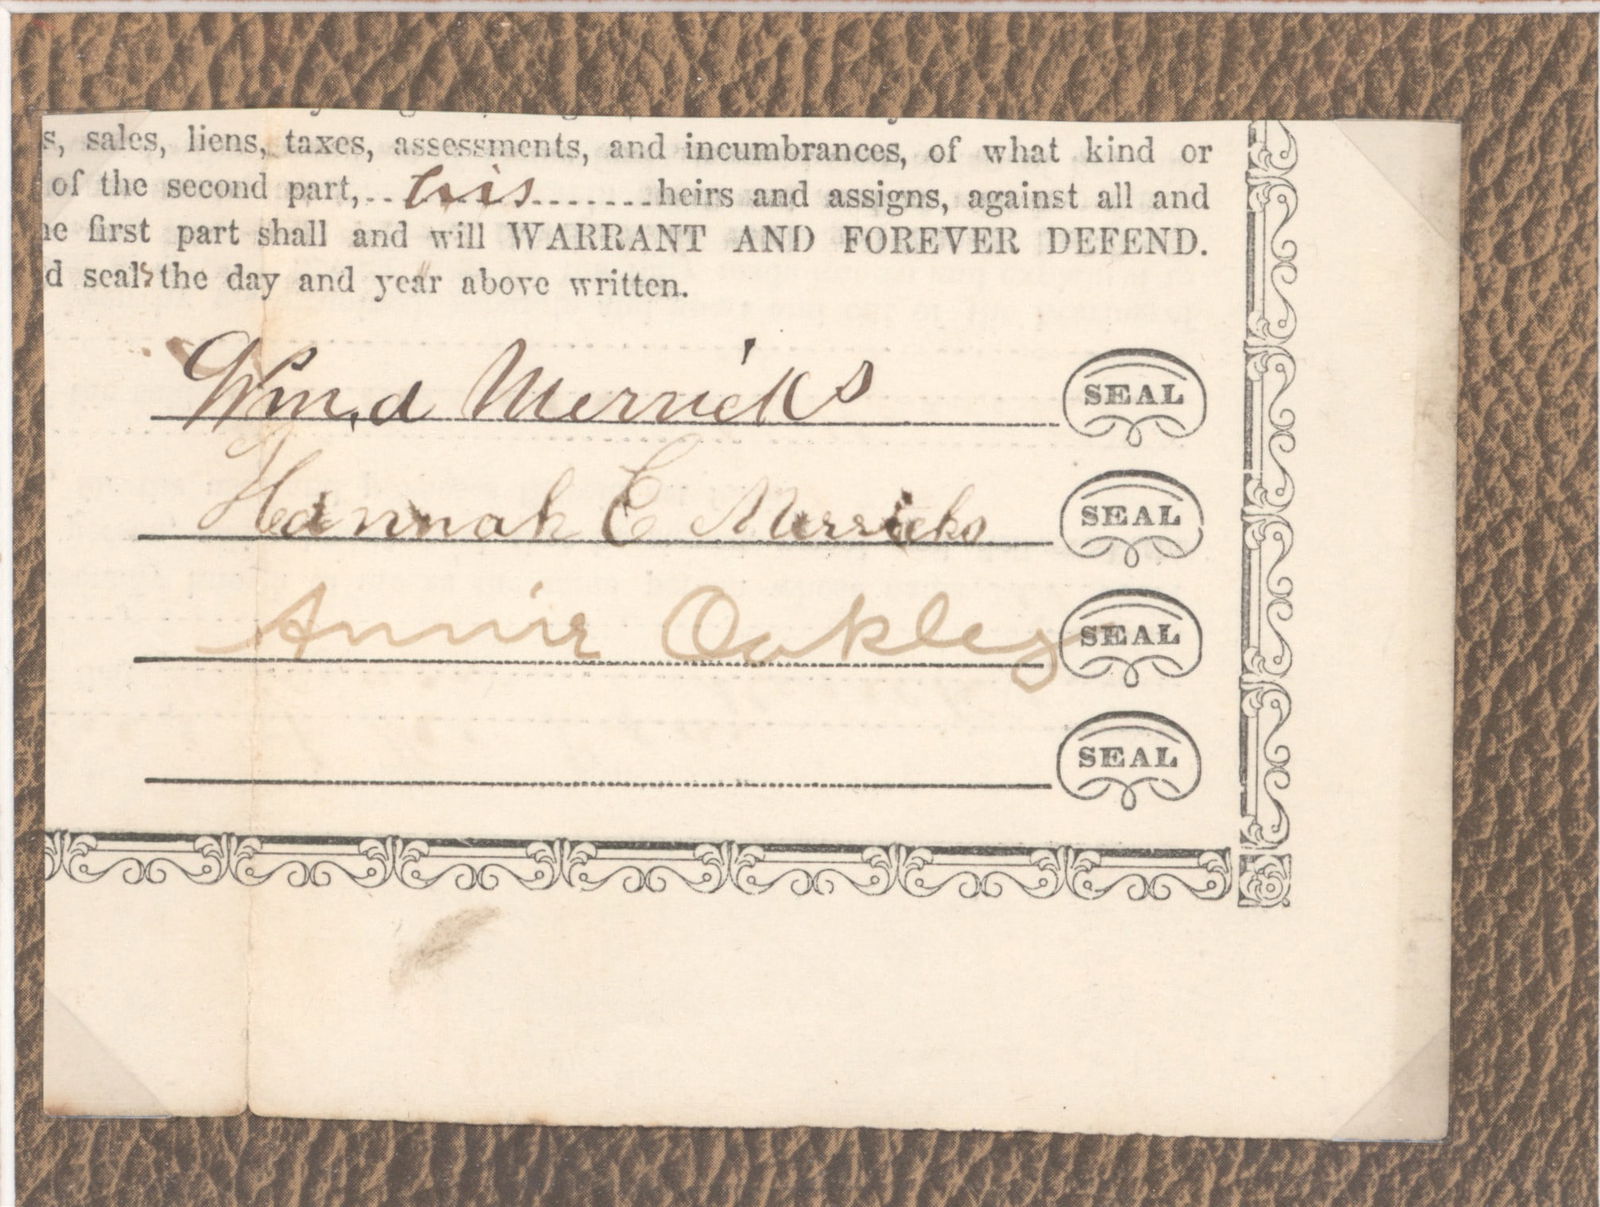 s, sales, liens, taxes, assessments, and incumbrances, of what kind or
of the second part, his heirs and assigns, against all and
he first part shall and will WARRANT AND FOREVER DEFEND.
d seals the day and year above written.
Wm. d Merricks SEAL
Hannah E Merricks SEAL
Annie Oakley SEAL
SEAL